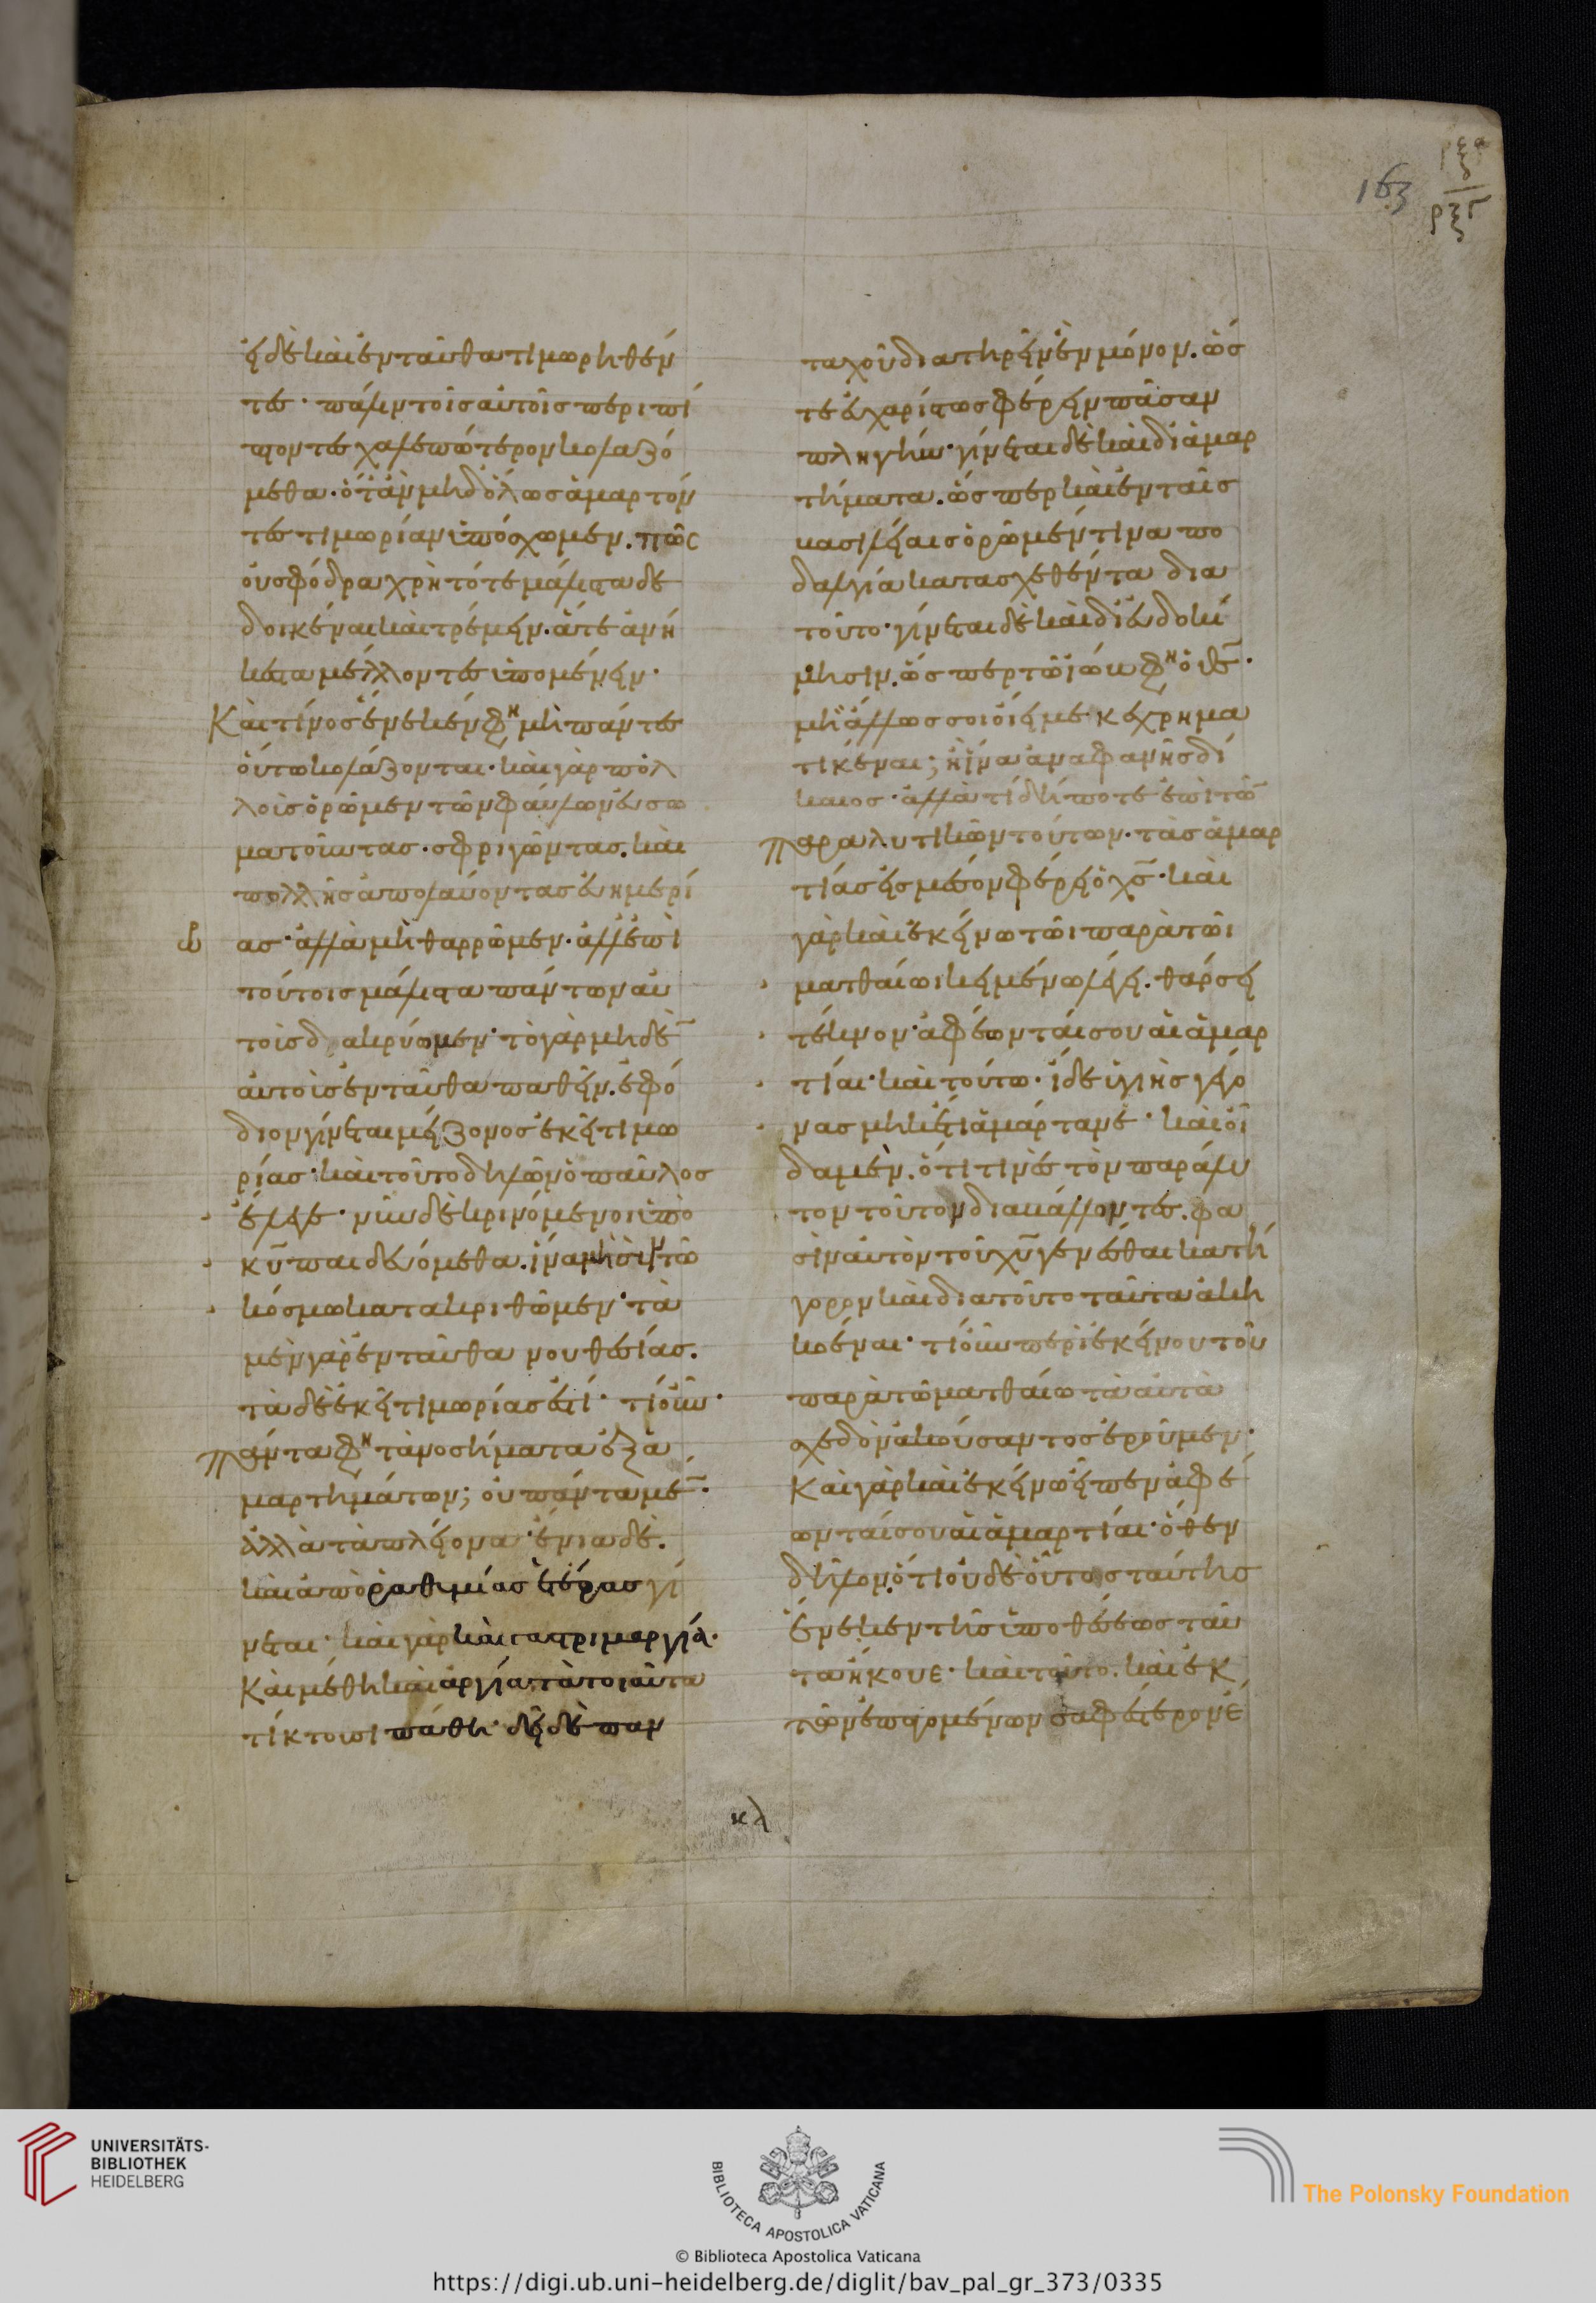 163
εἰ δὲ καὶ ἐνταῦθα τιμωρηθέν
τες· πάλιν τοῖς αὐτοῖς περιπί
πτοντες χαλεπώτερον κολαζό
μεθα· ὅταν μηδόλως ἁμαρτόν
τες τιμωρίαν ὑπόσχωμεν. πῶς
οὐ σφόδρα χρὴ τότε μάλιστα δε
δοικέναι καὶ τρέμειν. ἅτε ἀνή
κεστα μέλλοντες ὑπομένειν·
Καὶ τίνος ἕνεκεν φη μὴ πάντες
οὕτω κολάζονται· καὶ γὰρ πολ
λοὺς ὁρῶμεν τῶν φαύλων εὐσω
ματοῦντας· σφριγῶντας. καὶ
πολλῆς ἀπολαύοντας εὐημερί
ας· ἀλλὰ μὴ θαρρῶμεν· ἀλλ' ἐπὶ
τούτοις μάλιστα πάντων αὐ
τοὺς δακρύωμεν· τὸ γὰρ μηδὲ̄
αὐτοὺς ἐνταῦθα παθεῖν. ἐφό
διον γίνεται μείζονος ἐκεῖ τιμω
ρίας· καὶ τοῦτο δηλῶν ὁ παῦλος
ἔλεγε· νῦν δὲ κρινόμενοι ὑπὸ
κῡ παιδευόμεθα. ἵνα μὴ σὺν τῶ
κόσμω κατακριθῶμεν· τὰ
μὲν γὰρ ἐνταῦθα νουθεσίας.
τὰ δὲ ἐκεῖ τιμωρίας ἐστί· τί οὖν·
πάντα φη τὰ νοσήματα ἐξ ἁ
μαρτημάτων; οὐ πάντα με̄·
ἀλλὰ τὰ πλείονα· ἔνια δὲ.
καὶ ἀπὸ ῥαθυμίας ἑτέρας γί
νεται· καὶ γὰρ καὶ γαστριμαργία·
Καὶ μέθη καὶ ἀργία τὰ τοιαῦτα
τίκτουσι πάθη· δεῖ δὲ παν
ταχοῦ διατηρεῖν ἓν μόνον. ὥς
τε εὐχαρίστως φέρειν πᾶσαν
πληγήν· γίνεται δὲ καὶ δι' ἁμαρ
τήματα. ὥσπερ καὶ ἐν ταῖς
βασιλείαις ὁρῶμέν τινα πο
δαλγία κατασχεθέντα δια
τοῦτο· γίνεται δὲ καὶ δι' εὐδοκί
μησιν. ὥσπερ τῶ ἰὼβ φη ὁ θς̄·
μὴ ἄλλως σοι οἴει με κεχρημα
τικέναι; ἢ ἵνα ἀναφανῆς δί
καιος· ἀλλὰ τί δήποτε ἐπὶ τῶ̄
παραλυτικῶν τούτων· τὰς ἁμαρ
τίας εἰς μέσον φέρει ὁ χς̄· καὶ
γὰρ καὶ ἐκείνω τῶι παρὰ τῶι
ματθαίωι κειμένω λέγει. θάρσει
τέκνον· ἀφέωνταί σου αἱ ἁμαρ
τίαι· καὶ τούτω· ἴδε ὑγιὴς γέγο
νας μηκέτι ἁμάρτανε· καὶ οἶ
δα μὲν. ὅτι τινὲς τὸν παράλυ
τον τοῦτον διαβάλλοντες. φα
σὶν αὐτὸν τοῦ χῡ γενέσθαι κατή
γορον καὶ διατοῦτο ταῦτα ἀκη
κοέναι· τί οὖν περὶ ἐκείνου τοῦ
παρὰ τῶ ματθαίω τὰ αὐτὰ
σχεδὸν ἀκούσαντος ἐροῦμεν·
Καὶ γὰρ καὶ ἐκείνω εἶπεν ἀφέ
ωνταί σου αἱ ἁμαρτίαι· ὅθεν
δῆλον, ὅτι οὐδὲ οὗτος ταύτης
ἕνεκεν τῆς ὑποθέσεως ταῦ
τα ἤκουε· καὶ τοῦτο. καὶ ἐκ
τῶν ἑπομένων σαφέστερον ἐ
κλ
UNIVERSITÄTS-
BIBLIOTHEK
HEIDELBERG
BIBLIOTECA APOSTOLICA VATICANA
The Polonsky Foundation
© Biblioteca Apostolica Vaticana
https://digi.ub.uni-heidelberg.de/diglit/bav_pal_gr_373/0335